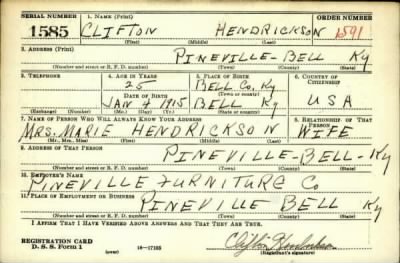 SERIAL NUMBER 1. NAME (Print) ORDER NUMBER
1585 CLIFTON HENDRICKSON 1591
(First) (Middle) (Last)
2. ADDRESS (Print)
PINEVILLE-BELL KY
(Number and street or R. F. D. number) (Town) (County) (State)
3. TELEPHONE 4. AGE IN YEARS 5. PLACE OF BIRTH 6. COUNTRY OF CITIZENSHIP
25 BELL CO. KY
DATE OF BIRTH (Town or county)
JAN 7 1915 BELL KY USA
(Exchange) (Number) (Mo.) (Day) (Yr.) (State or country)
7. NAME OF PERSON WHO WILL ALWAYS KNOW YOUR ADDRESS 8. RELATIONSHIP OF THAT PERSON
MRS. MARIE HENDRICKSON WIFE
(Mr., Mrs., Miss) (First) (Middle) (Last)
9. ADDRESS OF THAT PERSON
PINEVILLE-BELL-KY
(Number and street or R. F. D. number) (Town) (County) (State)
10. EMPLOYER'S NAME
PINEVILLE FURNITURE CO
11. PLACE OF EMPLOYMENT OR BUSINESS
PINEVILLE BELL KY
(Number and street or R. F. D. number) (Town) (County) (State)
I AFFIRM THAT I HAVE VERIFIED ABOVE ANSWERS AND THAT THEY ARE TRUE.
REGISTRATION CARD
D. S. S. Form 1 16-17105 Clifton Hendrickson
(Registrant's signature)